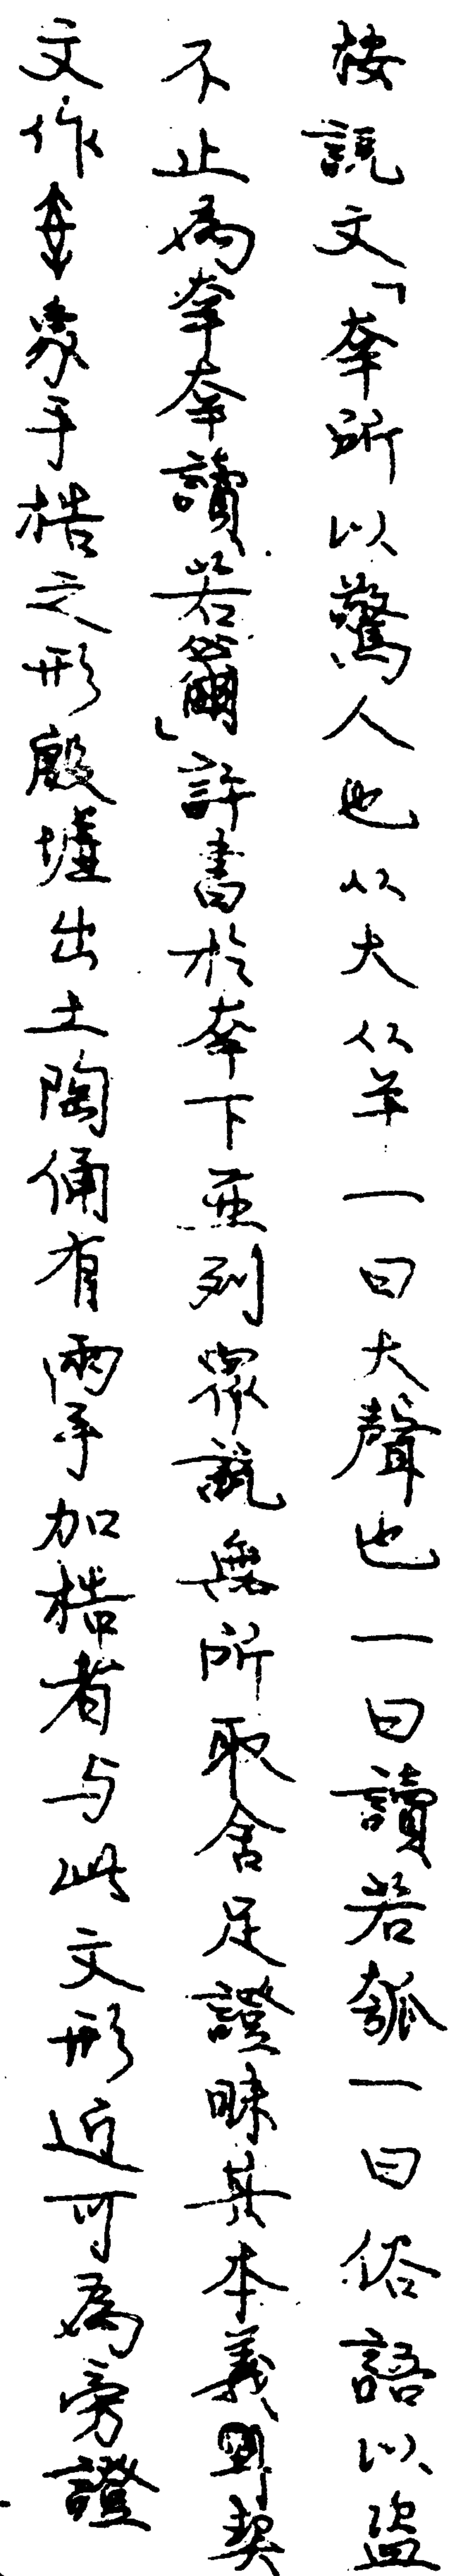 按說文「㚔所以驚人也从大从𢆉一曰大聲也一曰讀若瓠一曰俗語以盜
不止為㚔㚔讀若籋」許書於㚔下並列眾說無所取舍足證昧其本義卜契
文作象手梏之形殷墟出土陶俑有兩手加梏者与此文形近可為旁證